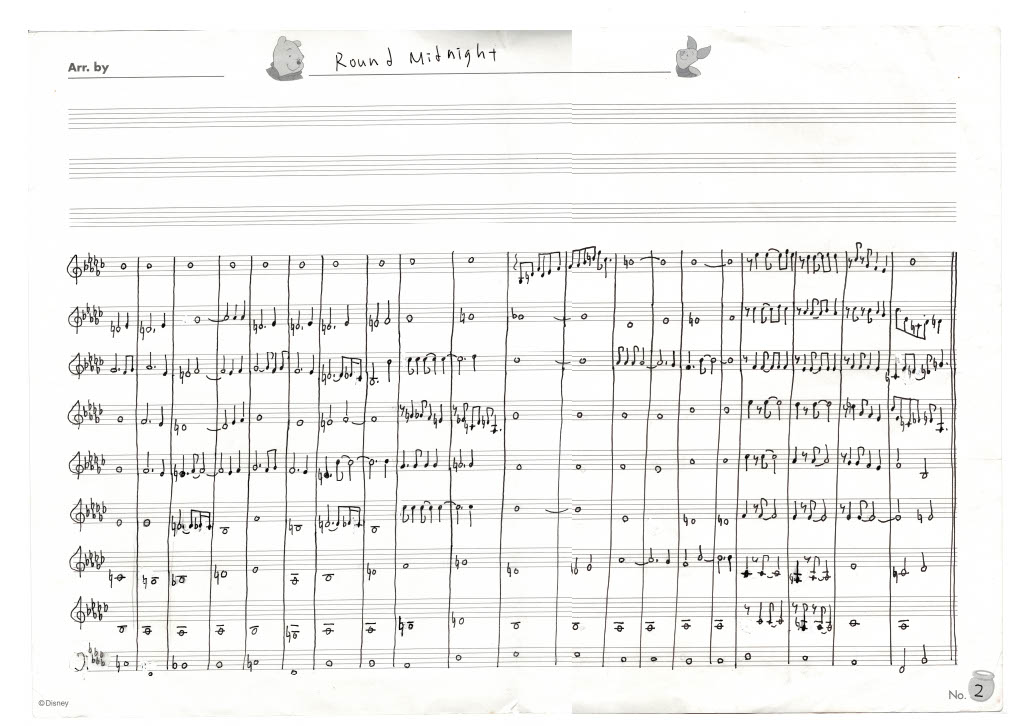 Arr. by
Round Midnight
©Disney
No. 2